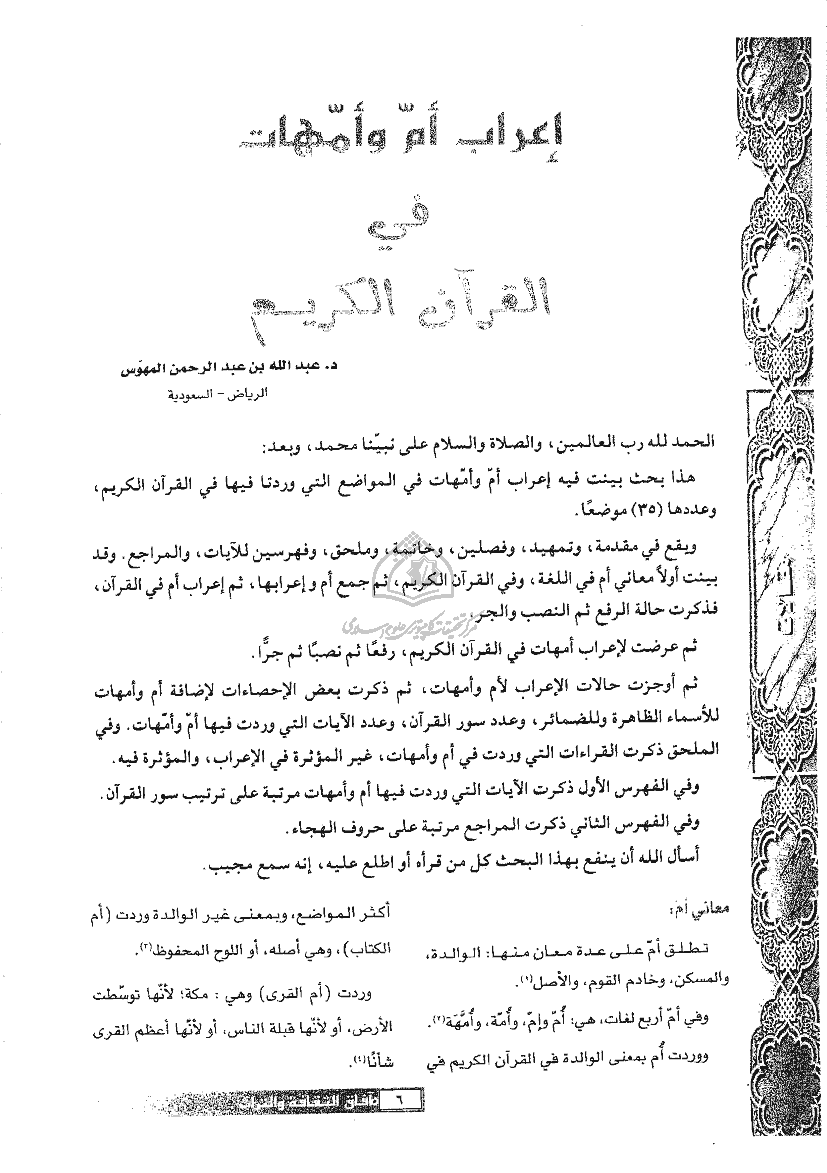 إعراب أمّ وأمّهات
في
القرآن الكريم
د. عبد الله بن عبد الرحمن المهوّس
الرياض - السعودية
الحمد لله رب العالمين، والصلاة والسلام على نبيّنا محمد، وبعد:
هذا بحث بينت فيه إعراب أمّ وأمّهات في المواضع التي وردتا فيها في القرآن الكريم،
وعددها (٣٥) موضعًا.
ويقع في مقدمة، وتمهيد، وفصلين، وخاتمة، وملحق، وفهرسين للآيات، والمراجع. وقد
بينت أولاً معاني أم في اللغة، وفي القرآن الكريم، ثم جمع أم وإعرابها، ثم إعراب أم في القرآن،
فذكرت حالة الرفع ثم النصب والجر.
ثم عرضت لإعراب أمهات في القرآن الكريم، رفعًا ثم نصبًا ثم جرًّا.
ثم أوجزت حالات الإعراب لأم وأمهات، ثم ذكرت بعض الإحصاءات لإضافة أم وأمهات
للأسماء الظاهرة وللضمائر، وعدد سور القرآن، وعدد الآيات التي وردت فيها أمّ وأمّهات. وفي
الملحق ذكرت القراءات التي وردت في أم وأمهات، غير المؤثرة في الإعراب، والمؤثرة فيه.
وفي الفهرس الأول ذكرت الآيات التي وردت فيها أم وأمهات مرتبة على ترتيب سور القرآن.
وفي الفهرس الثاني ذكرت المراجع مرتبة على حروف الهجاء.
أسأل الله أن ينفع بهذا البحث كل من قرأه أو اطلع عليه، إنه سمع مجيب.
معاني أمّ:
تطلق أمّ على عدة معان منها: الوالدة،
والمسكن، وخادم القوم، والأصل(١).
وفي أمّ أربع لغات، هي: أُمّ وإمّ، وأُمّة، وأُمَّهَة(٢).
ووردت أُم بمعنى الوالدة في القرآن الكريم في
أكثر المواضع، وبمعنى غير الوالدة وردت (أم
الكتاب)، وهي أصله، أو اللوح المحفوظ(٣).
وردت (أم القرى) وهي: مكة؛ لأنّها توسّطت
الأرض، أو لأنّها قبلة الناس، أو لأنّها أعظم القرى
شأنًا(٤).
٦ آفاق الثقافة والتراث